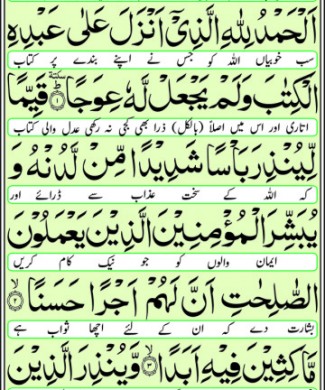 اَلْحَمْدُ لِلّٰهِ الَّذِیْۤ اَنْزَلَ عَلٰى عَبْدِهِ
سب خوبیاں اللہ کو جس نے اپنے بندے پر کتاب
الْكِتٰبَ وَلَمْ یَجْعَلْ لَّهٗ عِوَجًاؕٚ ۱ قَیِّمًا
اتاری اور اس میں اصلاً (بالکل) ذرا بھی کجی نہ رکھی عدل والی کتاب
لِّیُنْذِرَ بَاْسًا شَدِیْدًا مِّنْ لَّدُنْهُ وَ
کہ اللہ کے سخت عذاب سے ڈرائے اور
یُبَشِّرَ الْمُؤْمِنِیْنَ الَّذِیْنَ یَعْمَلُوْنَ
ایمان والوں کو جو نیک کام کریں
الصّٰلِحٰتِ اَنَّ لَهُمْ اَجْرًا حَسَنًاۙ ۲
بشارت دے کہ ان کے لئے اچھا ثواب ہے
مَّاكِثِیْنَ فِیْهِ اَبَدًاۙ ۳ وَّیُنْذِرَ الَّذِیْنَ